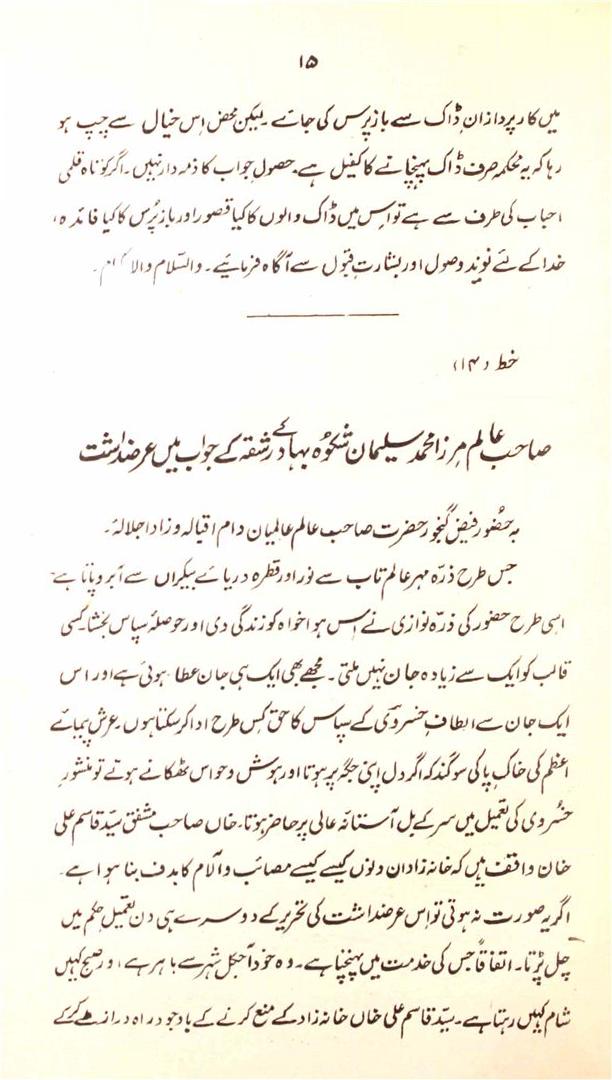 ۱۵
میں کار پردازانِ ڈاک سے باز پرس کی جائے۔ لیکن محض اس خیال سے چپ ہو
رہا کہ یہ محکمہ صرف ڈاک پہنچانے کا کفیل ہے۔ حصول جواب کا ذمہ دار نہیں۔ اگر کوتاہ قلمی
احباب کی طرف سے ہے تو اس میں ڈاک والوں کا کیا قصور اور باز پُرس کا کیا فائدہ،
خدا کے لئے نویدِ وصول اور بشارت قبول سے آگاہ فرمائیے۔ والسلام والا
خط (۱۴)
صاحب عالم مرزا محمد سلیمان شکوہ بہادر کے شقہ کے جواب میں عرضداشت
بہ حضور فیض گنجور حضرت صاحب عالم عالمیان دام اقبالہ وزاد اجلالہٗ۔
جس طرح ذرّہ مہر عالم تاب سے نور اور قطرہ دریائے بیکراں سے آبرو پاتا ہے۔
اسی طرح حضور کی ذرّہ نوازی نے اس ہوا خواہ کو زندگی دی اور حوصلۂ سپاس بخشا۔ کسی
قالب کو ایک سے زیادہ جان نہیں ملتی۔ مجھے بھی ایک ہی جان عطا ہوئی ہے اور اس
ایک جان سے الطافِ خسروی کے سپاس کا حق کس طرح ادا کر سکتا ہوں۔ عرش پیمائے
اعظم کی خاکِ پا کی سوگند کہ اگر دل اپنی جگہ پر ہوتا اور ہوش وحواس ٹھکانے ہوتے تو منشور
خسُروی کی تعمیل میں سر کے بل آستانۂ عالی پر حاضر ہوتا۔ خاں صاحب مشفق سیّد قاسم علی
خان واقف ہیں کہ خانہ زاد ان دنوں کیسے کیسے مصائب وآلام کا ہدف بنا ہوا ہے۔
اگر یہ صورت نہ ہوتی تو اس عرضداشت کی تحریر کے دوسرے ہی دن تعمیل حکم میں
چل پڑتا۔ اتفاقاً جس کی خدمت میں پہنچنا ہے۔ وہ خود آجکل شہر سے باہر ہے، اور صبح کہیں
شام کہیں رہتا ہے۔ سیّد قاسم علی خاں خانہ زاد کے منع کرنے کے باوجود راہ دراز طے کر کے